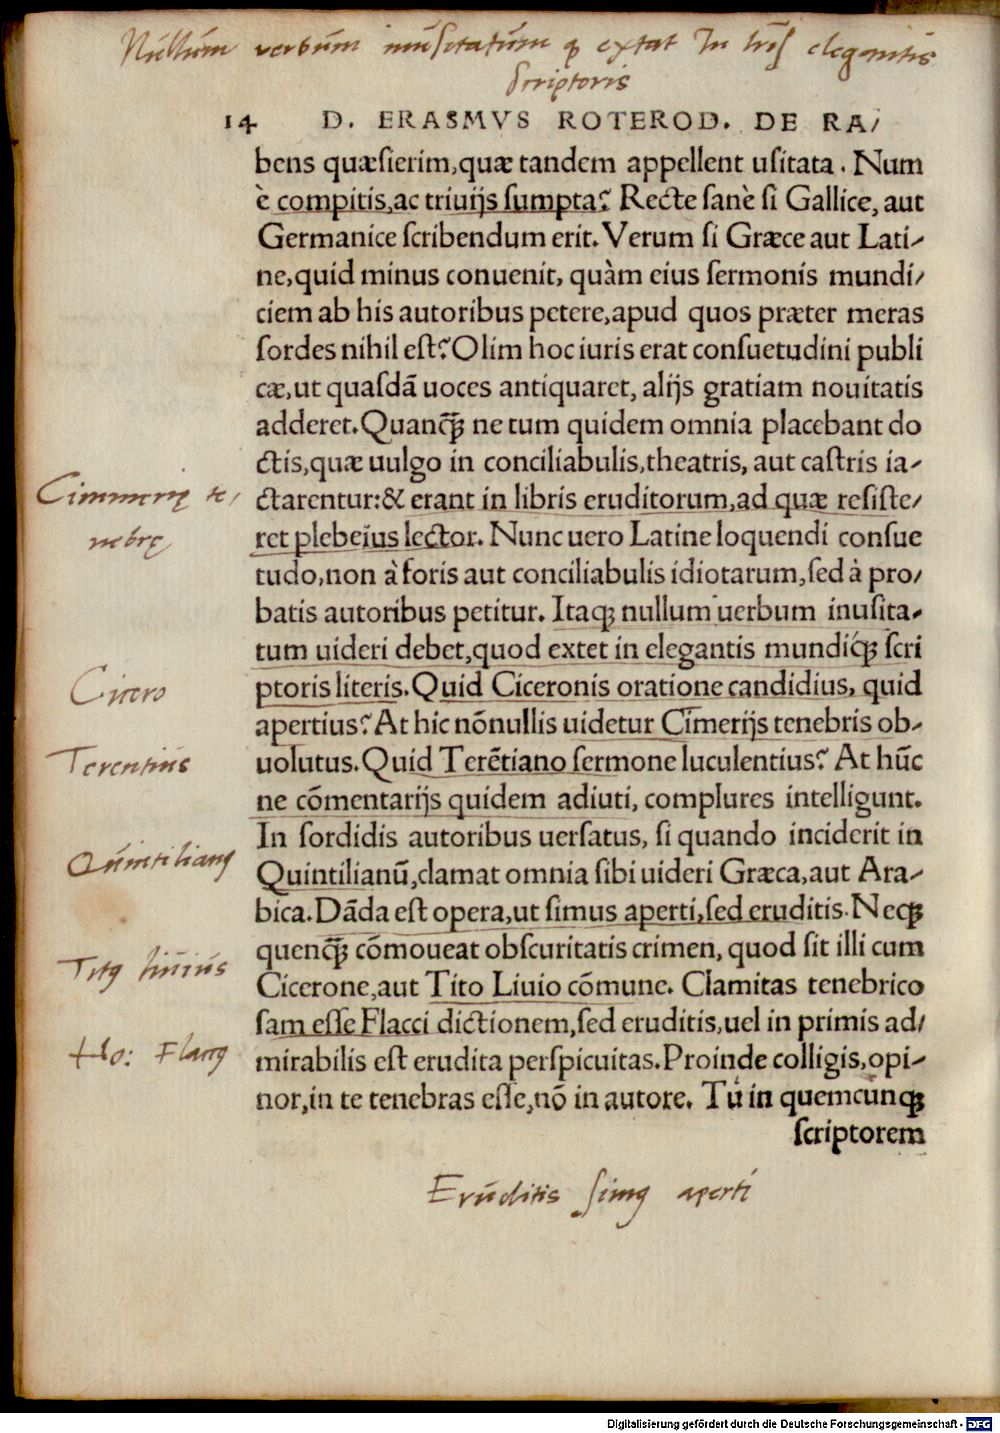 Nullum verbum inusitatum qđ extat In lrīs elegantis
Scriptoris
14 D. ERASMVS ROTEROD. DE RA/
bens quæsierim,quæ tandem appellent usitata. Num
è compitis,ac triuijs sumpta? Recte sanè si Gallice, aut
Germanice scribendum erit. Verum si Græce aut Lati-
ne,quid minus conuenit, quàm eius sermonis mundi/
ciem ab his autoribus petere,apud quos præter meras
sordes nihil est? Olim hoc iuris erat consuetudini publi
cæ,ut quasdā uoces antiquaret, alijs gratiam nouitatis
adderet. Quancꝗ̃ ne tum quidem omnia placebant do
ctis,quæ uulgo in conciliabulis,theatris, aut castris ia-
ctarentur: & erant in libris eruditorum,ad quæ resiste/
ret plebeius lector. Nunc uero Latine loquendi consue
tudo,non à foris aut conciliabulis idiotarum,sed à pro/
batis autoribus petitur. Itaqꝫ nullum uerbum inusita-
tum uideri debet,quod extet in elegantis mundiqꝫ scri
ptoris literis. Quid Ciceronis oratione candidius, quid
apertius? At hic nōnullis uidetur Cīmerijs tenebris ob-
uolutus. Quid Terētiano sermone luculentius? At hūc
ne cōmentarijs quidem adiuti, complures intelligunt.
In sordidis autoribus uersatus, si quando inciderit in
Quintilianū,clamat omnia sibi uideri Græca,aut Ara-
bica. Dāda est opera,ut simus aperti,sed eruditis. Necꝗ
quencꝗ̃ cōmoueat obscuritatis crimen, quod sit illi cum
Cicerone,aut Tito Liuio cōmune. Clamitas tenebrico
sam esse Flacci dictionem,sed eruditis,uel in primis ad/
mirabilis est erudita perspicuitas. Proinde colligis,opi-
nor,in te tenebras esse,nō in autore. Tu in quemcunqꝫ
scriptorem
Cimmerię te/
nebrę
Cicero
Terentius
Quintilianꝰ
Titꝰ liuius
Ho: Flaccꝰ
Eruditis simꝰ aperti
Digitalisierung gefördert durch die Deutsche Forschungsgemeinschaft - DFG